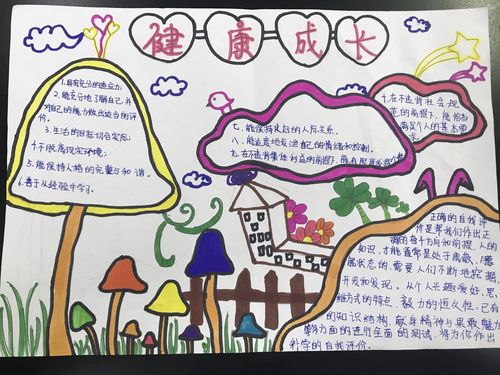 健康成长
1.具有充分的适应力;
2.能充分地了解自己,并
对自己的能力做出适当的评
价。
3.生活的目标切合实际;
4.不脱离现实环境;
5.能保持人格的完整与和谐。
6.善于从经验中学习。
七.能保持良好的人际关系。
八.能适度地发泄自己的情绪和控制。
九.在不违背集体利益的前提下,
十.在不违背社会规
范的前提下,能恰当
满足个人的基本要
正确的自我评
价是帮我们作出正
确的 和前提,人的
知识,才能通常是处于离散、
状态的,需要人们不断地挖掘,
开发和发现。从个人兴趣爱好、思
维方式的特点、毅力的恒久性、已有
的知识结构、献身精神与果敢魅力
等方面的进行全面的测试,将为你作出
科学的自我评价。